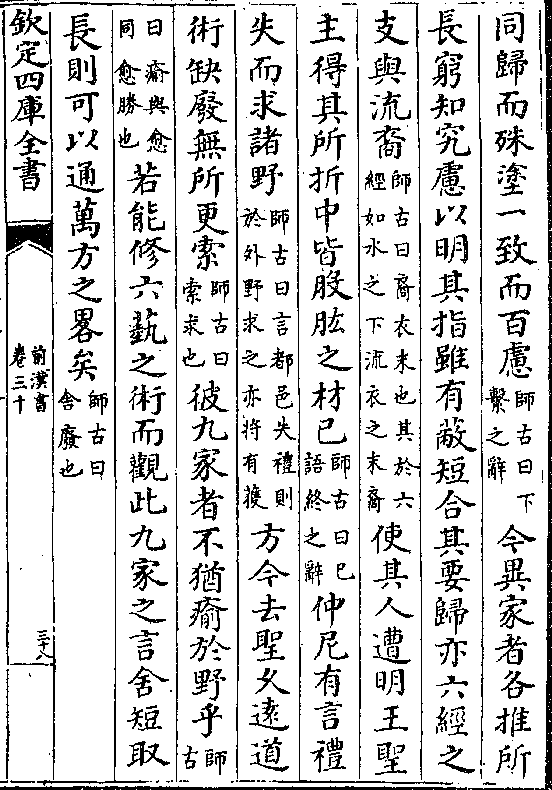 同歸而殊塗一致而百慮師古曰下繫之辭今異家者各推所
長窮知究慮以明其指雖有蔽短合其要歸亦六經之
支與流裔師古曰裔衣末也其於六經如水之下流衣之末裔使其人遭明王聖
主得其所折中皆股肱之材已師古曰已語終之辭仲尼有言禮
失而求諸野師古曰言都邑失禮則於外野求之亦將有獲方今去聖久遠道
術缺廢無所更索師古曰索求也彼九家者不猶瘉於野乎師古
曰瘉與愈同愈勝也若能修六藝之術而觀此九家之言舍短取
長則可以通萬方之畧矣師古曰舍廢也
欽定四庫全書
前漢書
卷三十
三十八